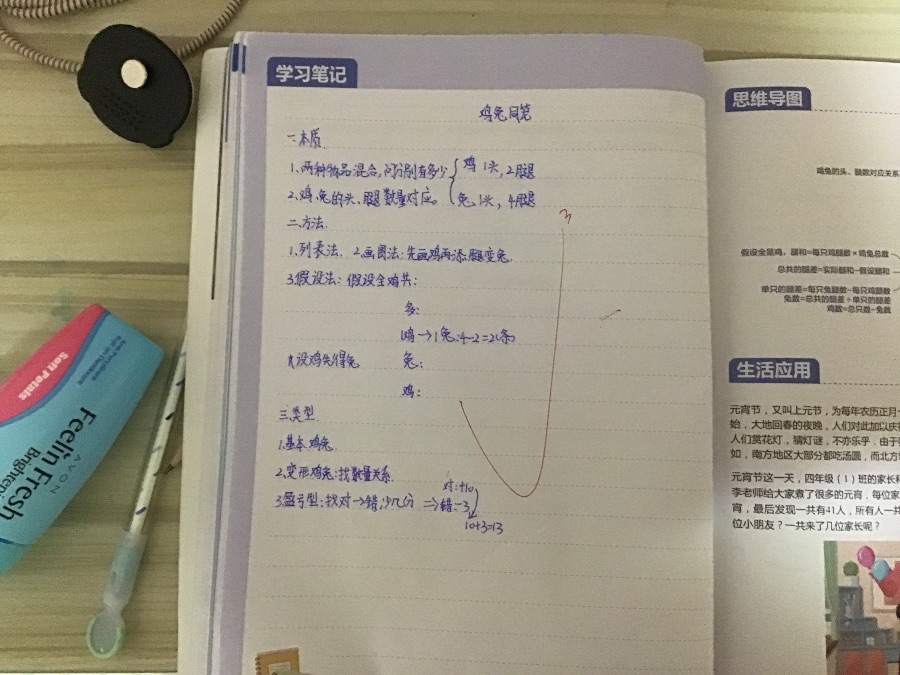 学习笔记
鸡兔同笼
一.本质.
1.两种物品混合,问分别有多少 鸡 1头,2腿
2.鸡、兔的头、腿数量对应。 兔 1头,4腿
二.方法.
1.列表法. 2.画图法:先画鸡再添腿变兔.
3.假设法:假设全鸡共:
多:
1鸡→1兔:4-2=2(条)
设鸡先得兔 兔:
鸡:
三.类型
1.基本鸡兔.
2.变形鸡兔:找数量关系.
对:+10
3.盈亏型:找对→错,少几分 ⇒错:-3
10+3=13
3
思维导图
鸡兔的头、腿数对应关系
假设全是鸡,腿和=每只鸡腿数×鸡兔总数
总共的腿差=实际腿和-假设腿和
单只的腿差=每只兔腿数-每只鸡腿数
兔数=总共的腿差÷单只的腿差
鸡数=总只数-兔数
生活应用
元宵节,又叫上元节,为每年农历正月
始,大地回春的夜晚,人们对此加以庆
人们赏花灯,猜灯谜,不亦乐乎.由于
如,南方地区大部分都吃汤圆,而北方
元宵节这一天,四年级(1)班的家长和
李老师给大家煮了很多的元宵,每位家
宵,最后发现一共有41人,所有人一共
位小朋友?一共来了几位家长呢?
Soft Petals
Feelin Fresh
AVON